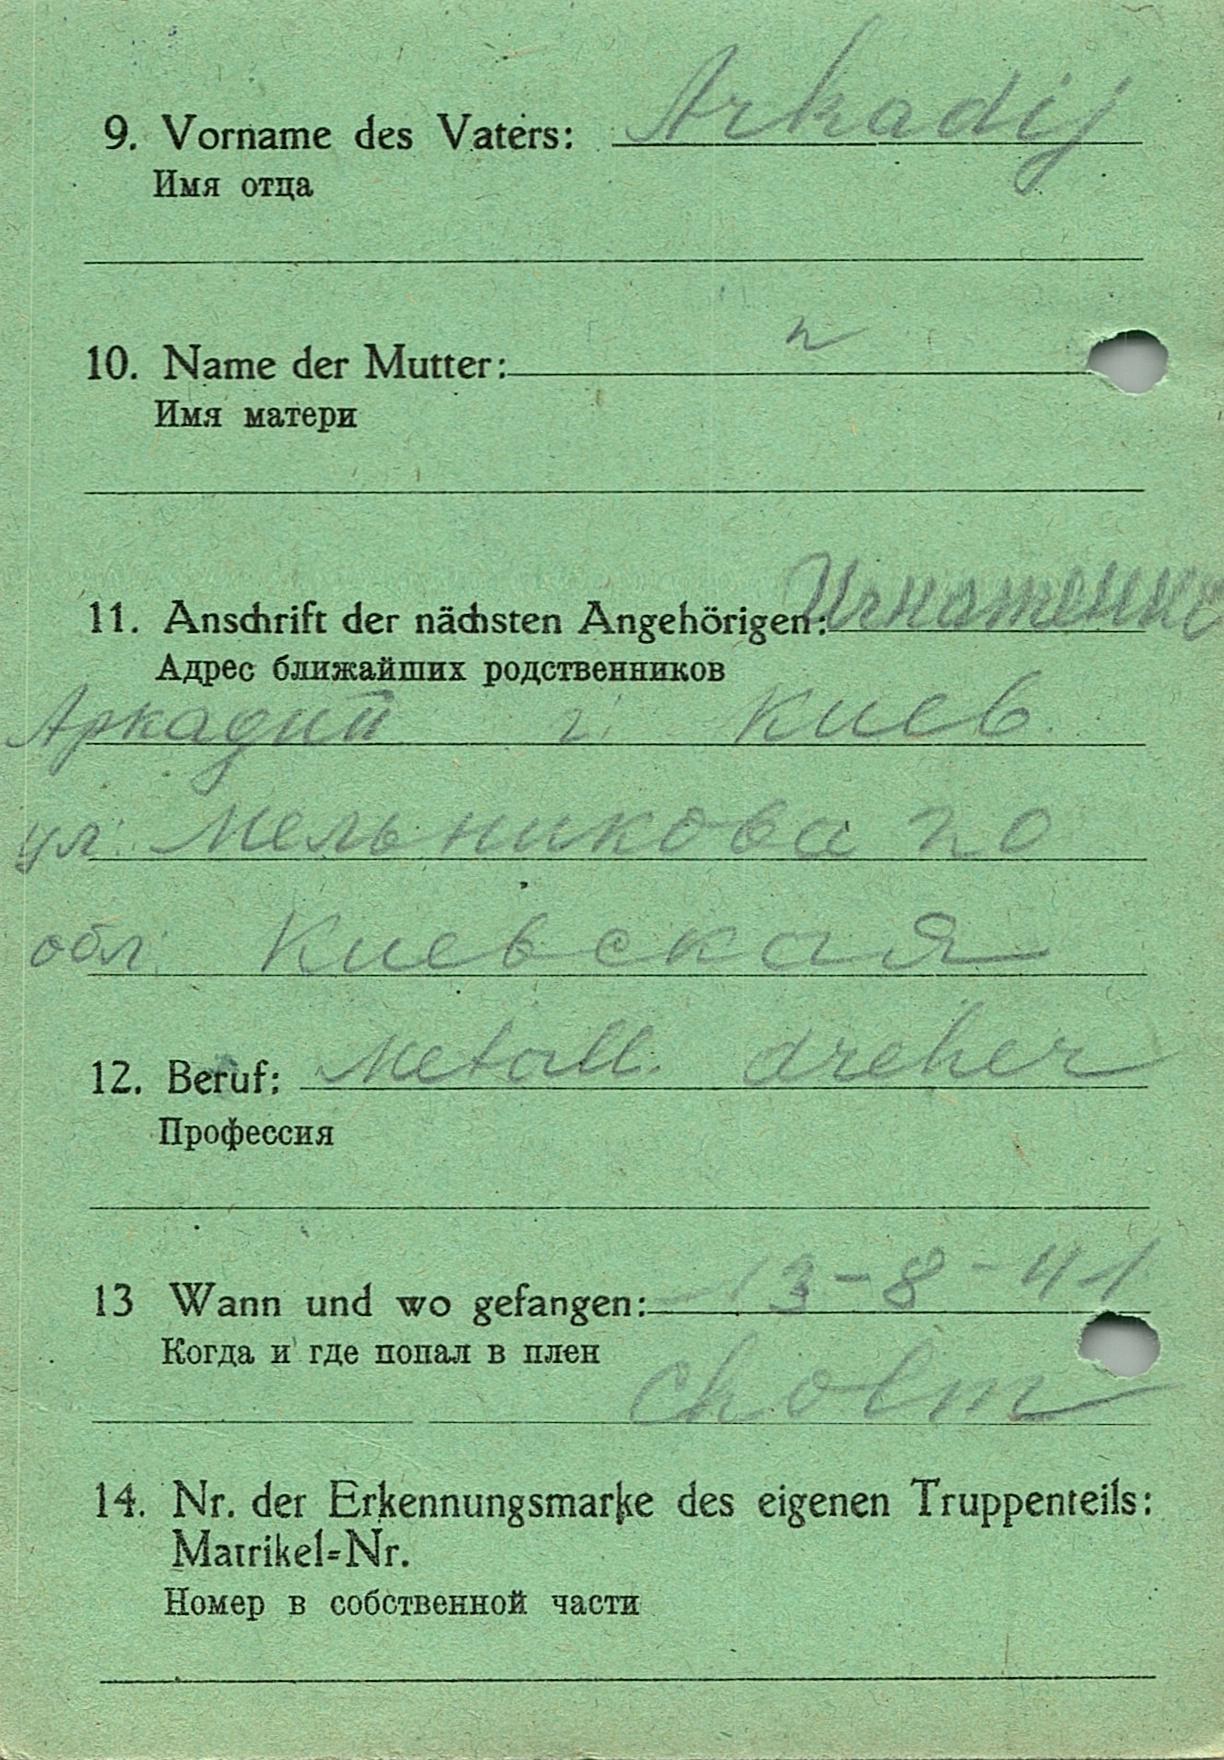 9. Vorname des Vaters: Arkadij
Имя отца
10. Name der Mutter:
Имя матери
11. Anschrift der nächsten Angehörigen: Игнатенко
Адрес ближайших родственников
Аркадий г. Киев
ул. Мельникова 20
обл. Киевская
12. Beruf: Metall. dreher
Профессия
13 Wann und wo gefangen: 13-8-41
Когда и где попал в плен
Cholm
14. Nr. der Erkennungsmarke des eigenen Truppenteils:
Matrikel-Nr.
Номер в собственной части